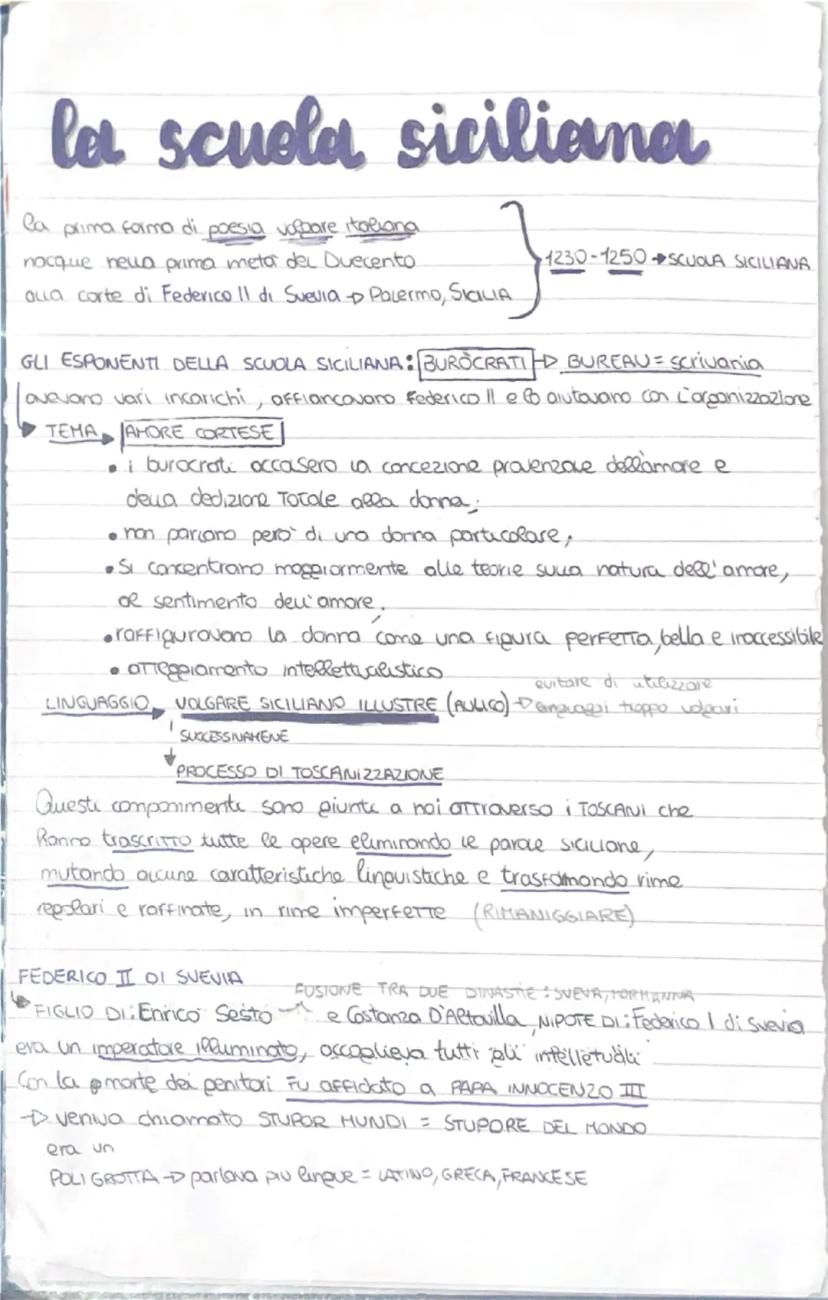 la scuola siciliana
la prima forma di poesia volgare italiana
nacque nella prima metà del Duecento
alla corte di Federico II di Svevia → Palermo, SICILIA
1230-1250 → SCUOLA SICILIANA
GLI ESPONENTI DELLA SCUOLA SICILIANA: BURÒCRATI → BUREAU = scrivania
avevano vari incarichi, affiancavano Federico II e lo aiutavano con l'organizzazione
TEMA → AMORE CORTESE
• i burocrati accasero la concezione provenzale dell'amore e
della dedizione totale alla donna;
• non parlano però di una donna particolare;
• Si concentrano maggiormente alle teorie sulla natura dell'amore,
al sentimento dell'amore.
• raffiguravano la donna come una figura perfetta, bella e inaccessibile
• atteggiamento intellettualistico
LINGUAGGIO → VOLGARE SICILIANO ILLUSTRE (AULICO) → evitare di utilizzare
linguaggi troppo volgari
SUCCESSIVAMENE
PROCESSO DI TOSCANIZZAZIONE
Questi componimenti sono giunti a noi attraverso i TOSCANI che
hanno trascritto tutte le opere eliminando le parole siciliane,
mutando alcune caratteristiche linguistiche e trasformando rime
regolari e raffinate, in rime imperfette (RIMANIGGIARE)
FEDERICO II DI SVEVIA
FUSIONE TRA DUE DINASTIE: SVEVA, NORMANNA
FIGLIO DI: Enrico Sesto e Costanza D'Altavilla, NIPOTE DI: Federico I di Svevia
era un imperatore illuminato, accoglieva tutti gli intellettuali
Con la morte dei genitori FU AFFIDATO A PAPA INNOCENZO III
→ veniva chiamato STUPOR MUNDI = STUPORE DEL MONDO
era un
POLIGROTTA → parlava più lingue = LATINO, GRECA, FRANCESE